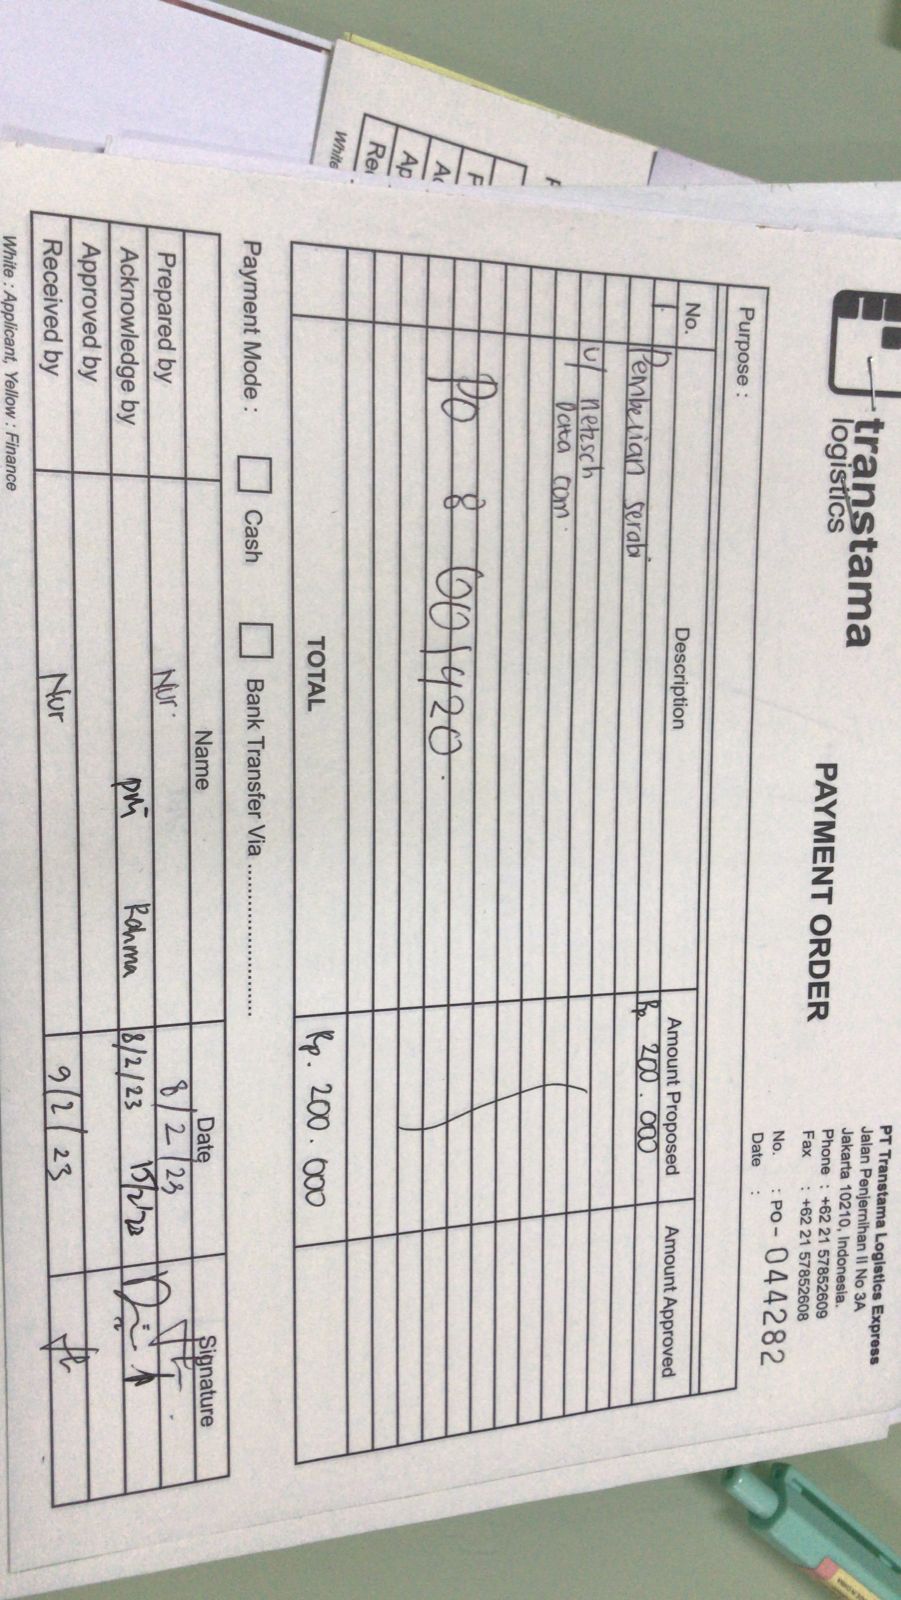 transtama
logistics
PAYMENT ORDER
PT Transtama Logistics Express
Jalan Penjernihan II No 3A
Jakarta 10210, Indonesia.
Phone : +62 21 57852609
Fax : +62 21 57852608
No. : PO - 044282
Date :
Purpose :
No. Description Amount Proposed Amount Approved
1. Pembelian serabi Rp. 200.000
u/ netzsch
Data com.
PO 8 001420.
TOTAL Rp. 200.000
Payment Mode : Cash Bank Transfer Via ........................
Name Date Signature
Prepared by Nur. 8/2/23
Acknowledge by Rahma 8/2/23
Approved by
Received by Nur 9/2/23
White : Applicant, Yellow : Finance
White